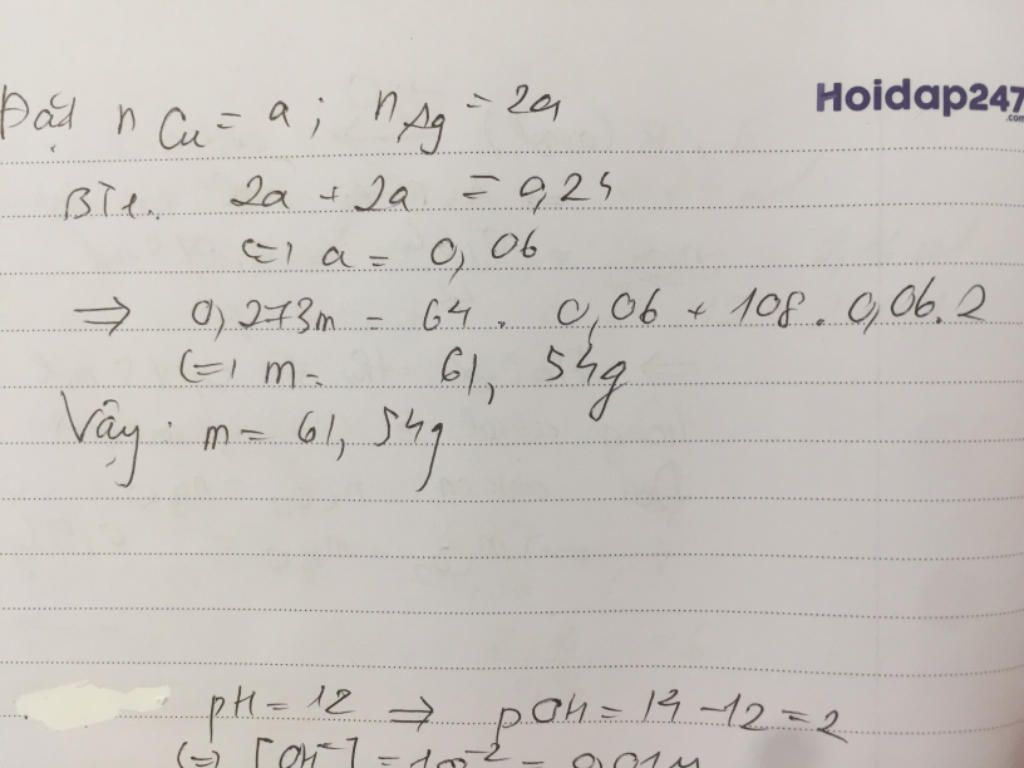 Hoidap247
.com
Đặt n Cu = a ; n Ag = 2a
BTe. 2a + 2a = 0,24
(=) a = 0,06
⇒ 0,273m = 64 . 0,06 + 108 . 0,06.2
(=) m = 61,54g
Vậy: m = 61,54g
pH = 12 ⇒ pOH = 14 - 12 = 2
(=) [OH⁻] = 10⁻² = 0,01M